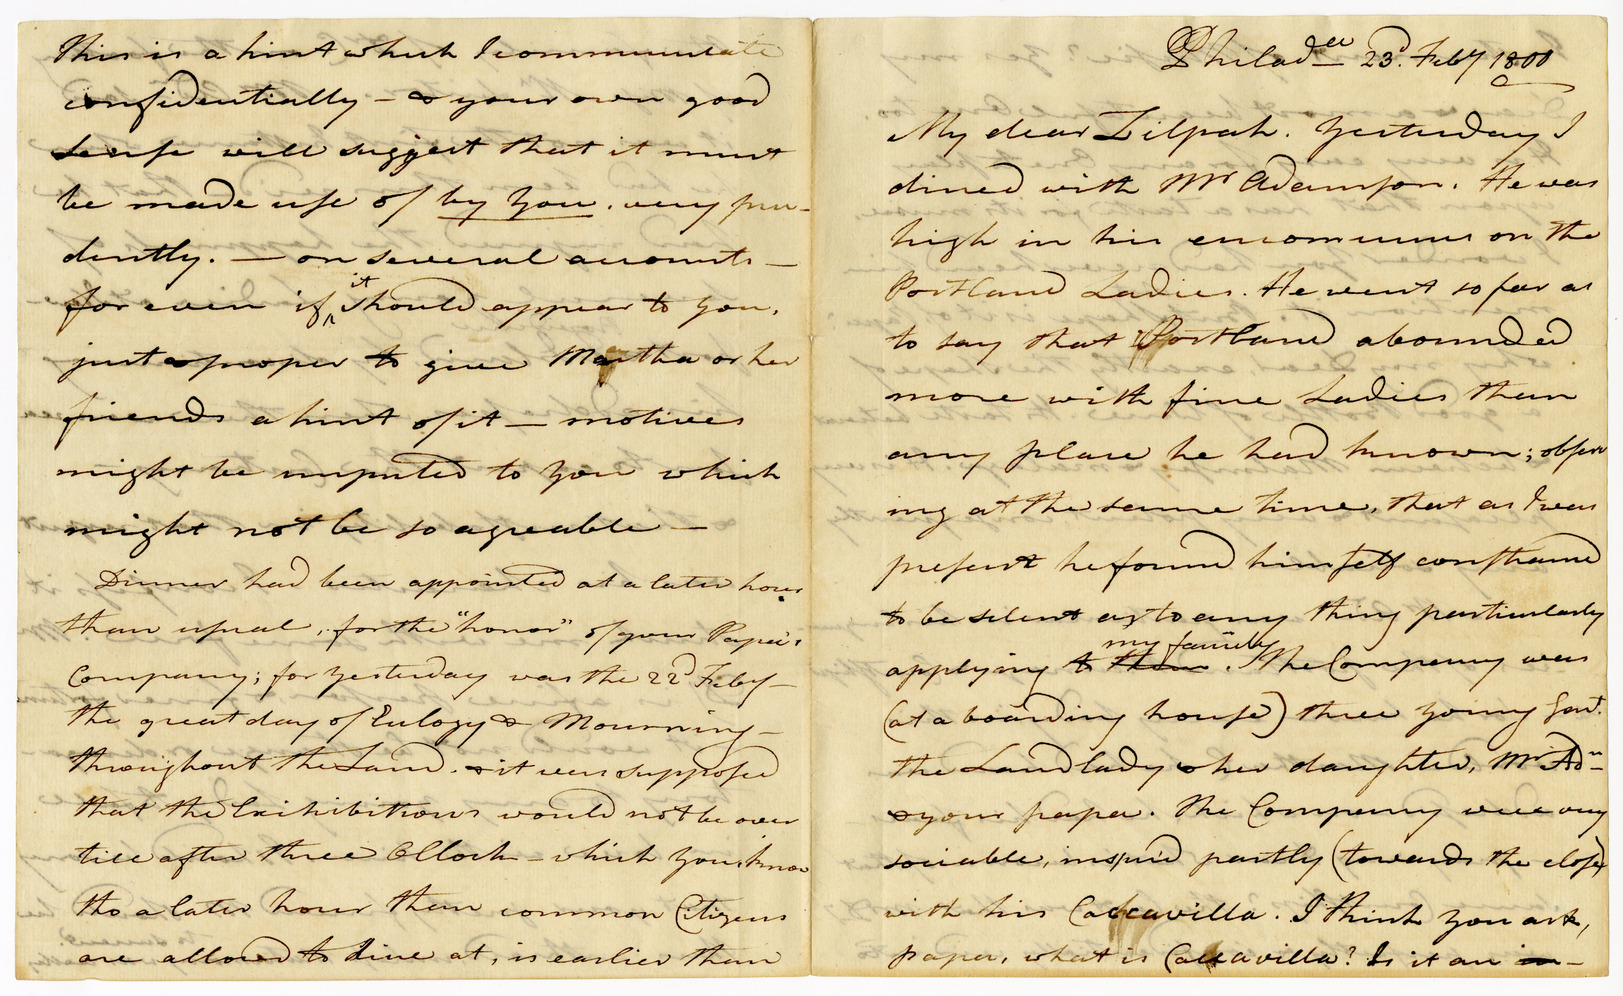 This is a hint which I communicate
confidentially – & your own good
sense will suggest that it must
be made use of by you. very pru-
dently. — on several accounts —
for even if it should appear to you,
just & proper to give Martha or her
friends a hint of it — motives
might be imputed to you which
might not be so agreable —
Dinner had been appointed at a later hour
than usual, for the "honor" of your Papa's
Company; for yesterday was the 22d Feby —
the great day of Eulogy & Mourning —
throughout the Land. & it was supposed
that the Exihibitions would not be over
till after three OClock – which you know
tho a later hour than common Citizens
are allowed to dine at, is earlier than
Philada 23d. Feby 1800
My dear Zilpah. Yesterday I
dined with Mr Adamson. He was
high in his encomiums on the
Portland Ladies. He went so far as
to say that Portland abounded
more with fine Ladies than
any place he had known; observ
ing at the same time, that as I was
present he found himself constrained
to be silent as to any thing particularly
applying to them my family. The Company was
(at a boarding house) three young Gent.
the Landlady & her daughter, Mr Adn
& your papa. The Company were very
sociable, inspired partly (towards the close)
with his Calcavilla. I think you ask,
papa, what is Calcavilla? Is it an in-